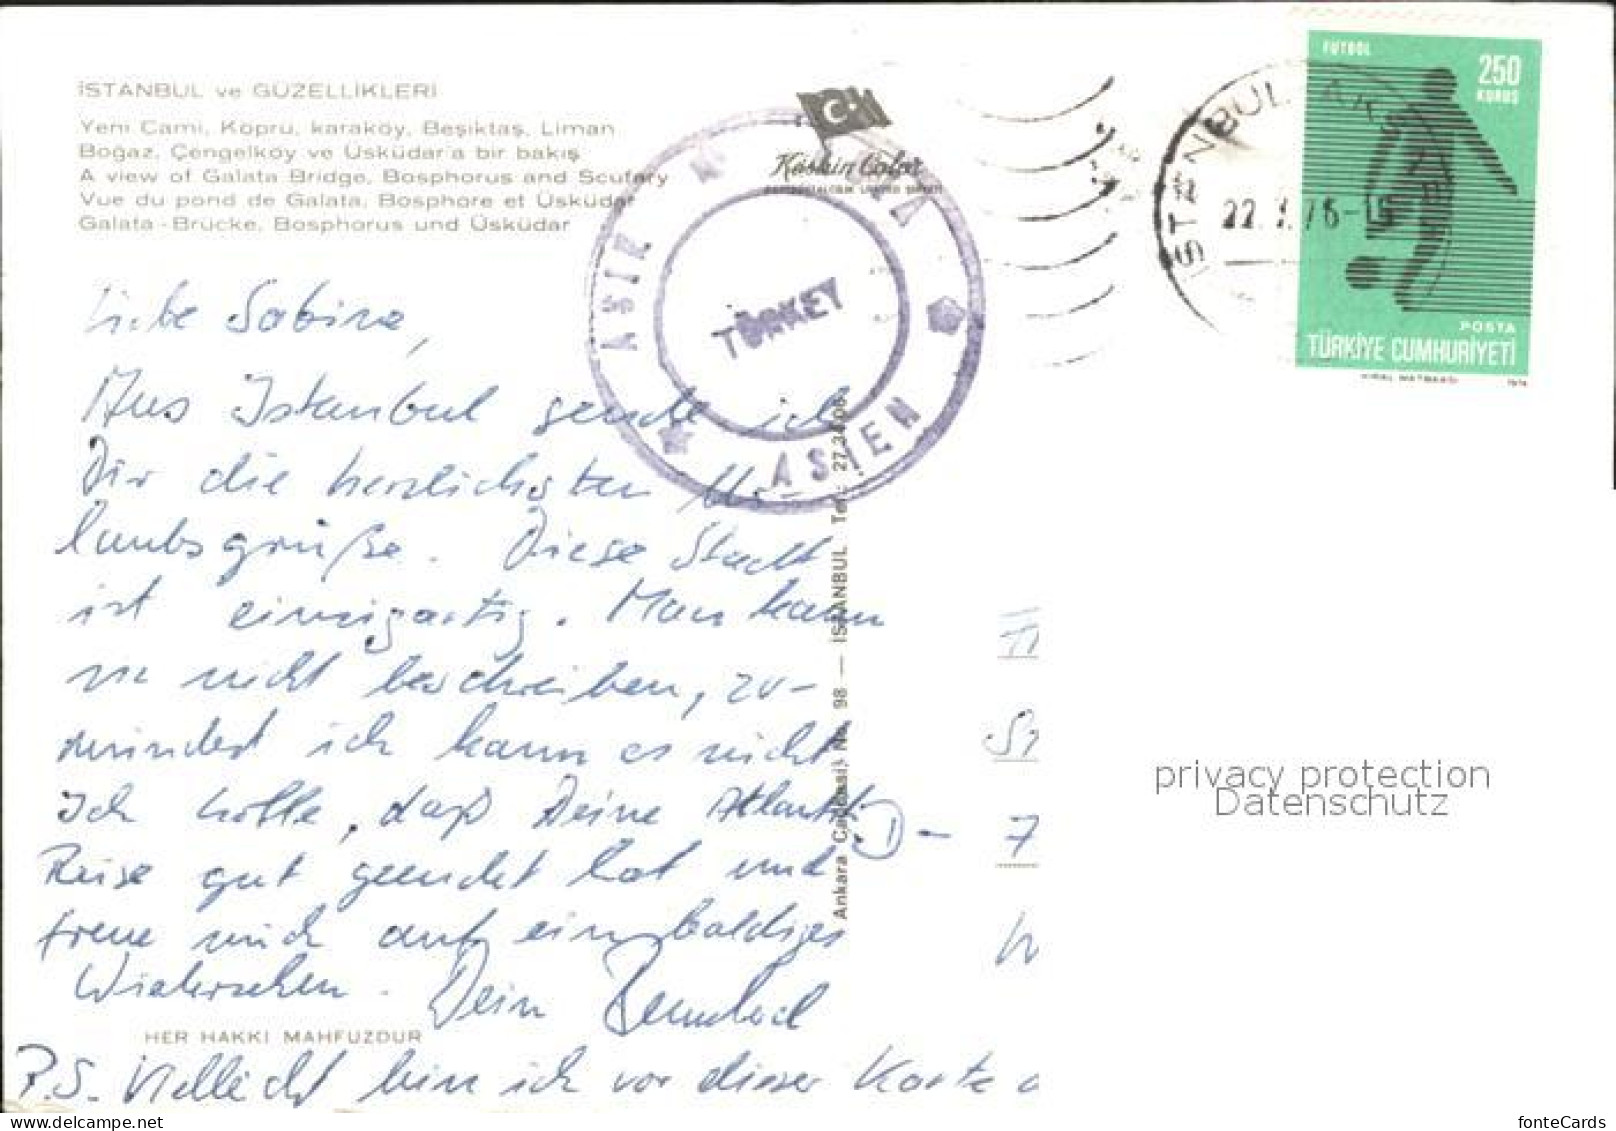 İSTANBUL ve GÜZELLİKLERİ
Yeni Cami, Köprü, karaköy, Beşiktaş, Liman
Boğaz, Çengelköy ve Üsküdar'a bir bakış
A view of Galata Bridge, Bosphorus and Scutary
Vue du pond de Galata, Bosphore et Üsküdar
Galata-Brücke, Bosphorus und Üsküdar
Keskin Color
ASIE
ASIEN
TÜRKEY
İSTANBUL
22.1.76-
FUTBOL
250
KURUŞ
POSTA
TÜRKİYE CUMHURİYETİ
1974
Liebe Sabine,
Aus Istanbul sende ich
Dir die herzlichsten Ur-
laubsgrüße. Diese Stadt
ist einzigartig. Man kann
sie nicht beschreiben, zu-
mindest ich kann es nicht
Ich hoffe, daß Deine Atlantik-
Reise gut geendet hat und
freue mich auf ein baldiges
Wiedersehen. Dein
P.S. Vielleicht bin ich vor dieser Karte
HER HAKKI MAHFUZDUR
Ankara Caddesi, No. 98 — İSTANBUL Tel:
privacy protection
Datenschutz
www.delcampe.net
fonteCards